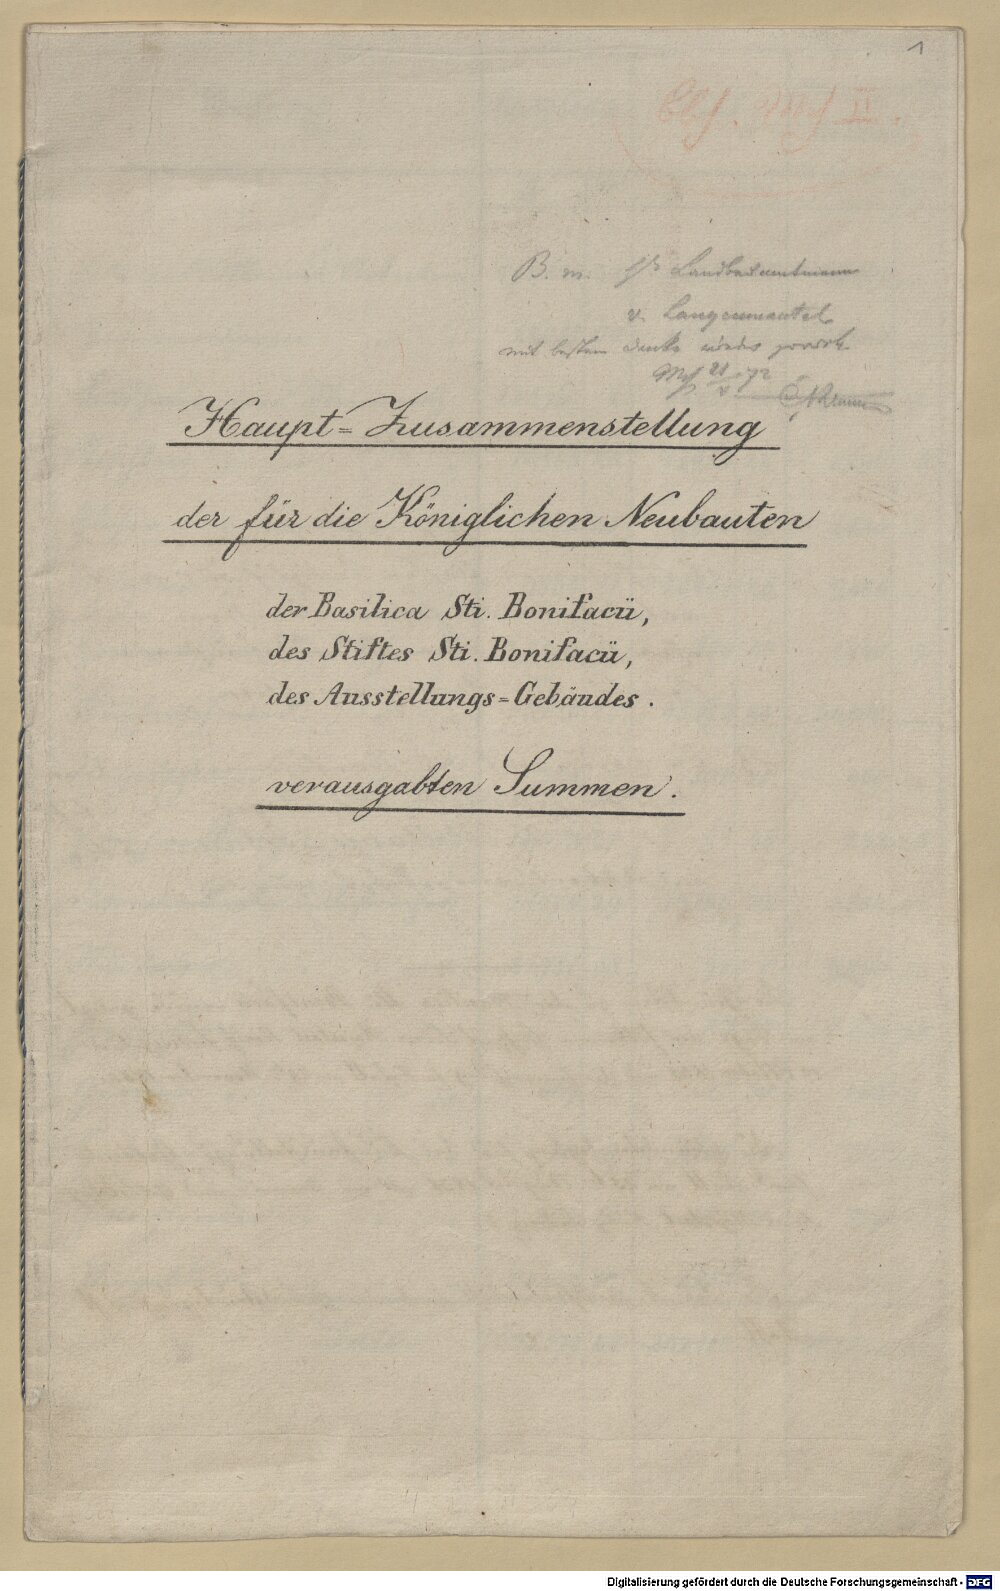 1
II.
B. m. Landbauamtmann
v. Langenmantel
mit bestem Danke wieder zurück
Haupt=Zusammenstellung
der für die Königlichen Neubauten
der Basilica Sti. Bonifacii,
des Stiftes Sti. Bonifacii,
des Ausstellungs=Gebäudes.
verausgabten Summen.
Digitalisierung gefördert durch die Deutsche Forschungsgemeinschaft - DFG